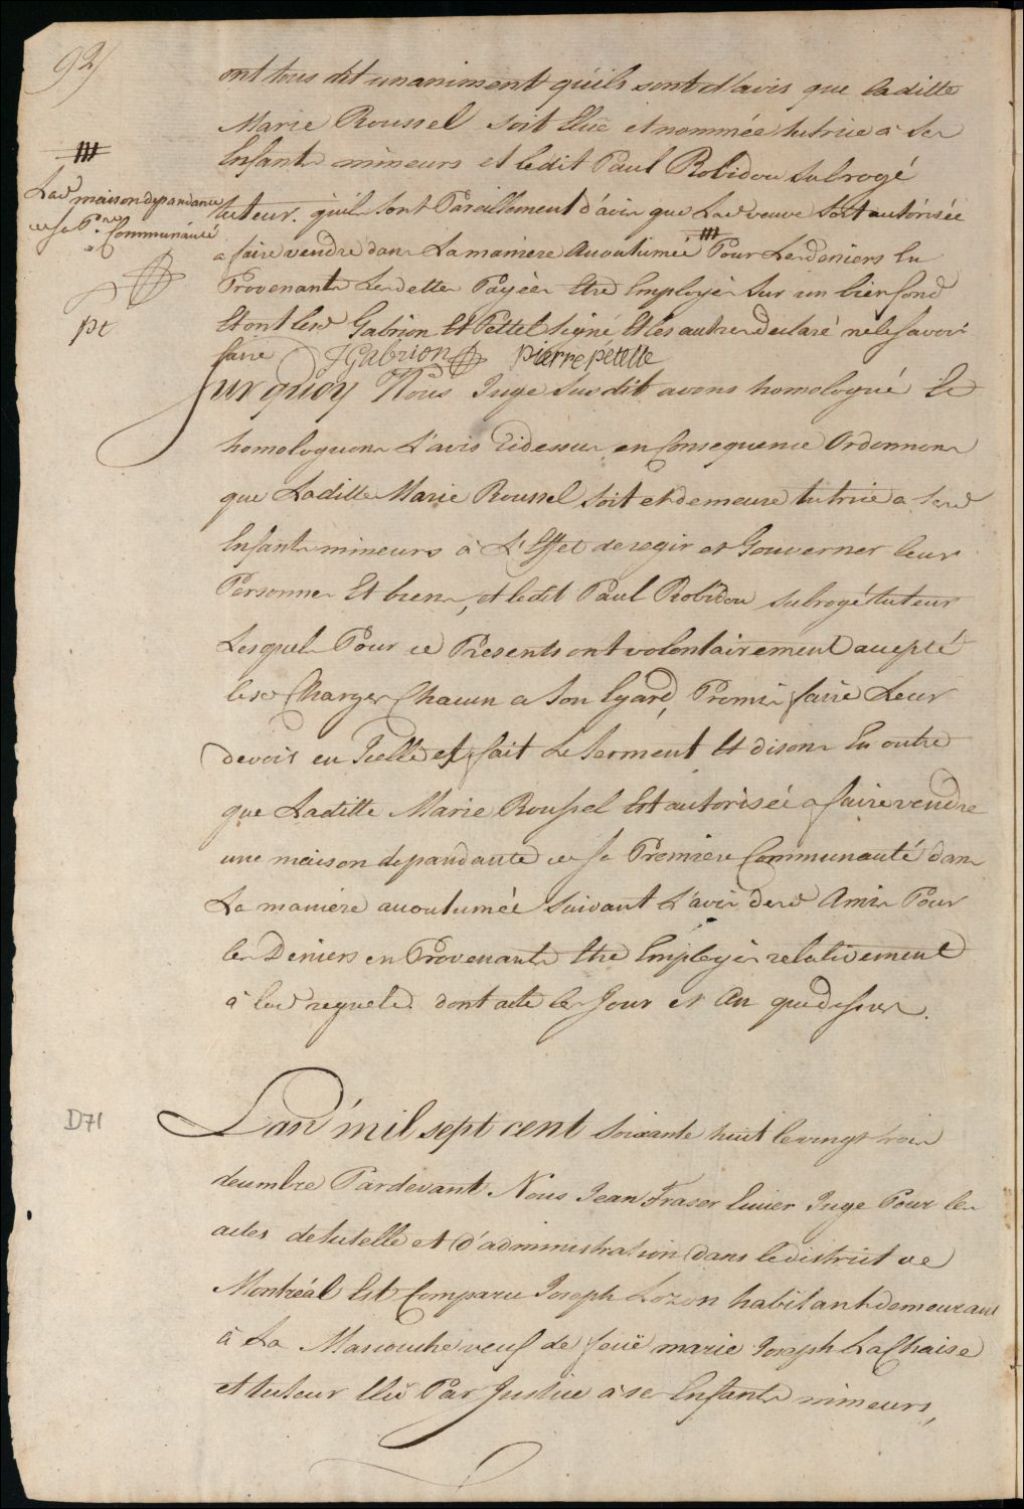 92/
ont tous dit unaniment qu'ils sont d'avis que laditte
Marie Roussel soit Elue et nommée tutrice a ses
Enfants mineurs et ledit Paul Robidou subrogé
tuteur. qu'ils sont Pareillement d'avis que Lad veuve soit autorisée
a faire vendre dans La maniere Accoutumée Pour Les deniers En
Provenants Les dettes Payées Etre Employés sur un bien fond
Et ont lesd Gabrion Et Pettel signé Et les autres declaré ne le savoir
faire JGabrion pierre petelle
Lad maison dependante
de sa P.re Communauté
pt
Sur quoy Nous Juge susdit avons homologué Et
homologuons L'avis Cidessus en Consequence Ordonnons
que Laditte Marie Roussel soit et demeure tutrice a sesd
Enfants mineurs à L'Effet de regir et Gouverner leur
Personnes Et biens, et ledit Paul Robidou subrogé tuteur
Lesquels Pour ce Presents ont volontairement accepté
lesd Charges Chacun a son Egard, Promis faire Leur
devoir en Icelles et fait Le serment Et disons En outre
que Laditte Marie Roussel Est autorisée a faire vendre
une maison dependante de sa Premiere Communauté dans
La maniere accoutumée suivant L'avis desd Amis Pour
les Deniers en Provenants Etre Employés relativement
à lad requete. dont acte les Jour et An que dessus.
D71
L'an mil sept cent soixante huit le vingt trois
decembre Pardevant Nous Jean Fraser Ecuier Juge Pour les
actes de tutelle et d'administration dans le district de
Montréal Est Comparu Joseph Lozon habitant demeurant
à La Mascouche veuf de feüe marie Joseph LaChaise
et tuteur Elû Par Justice à ses Enfants mineurs,